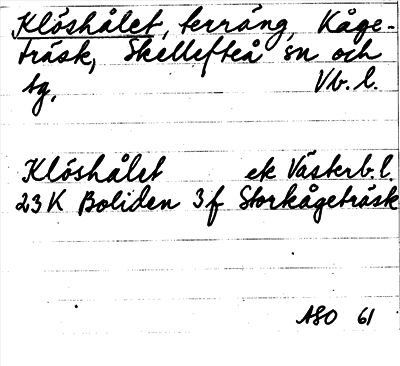 Klöshålet, terräng, Kåge-
träsk, Skellefteå sn och
tg, Vb. l.
Klöshålet ek Västerb. l.
23 K Boliden 3 f Storkågeträsk
ASO 61